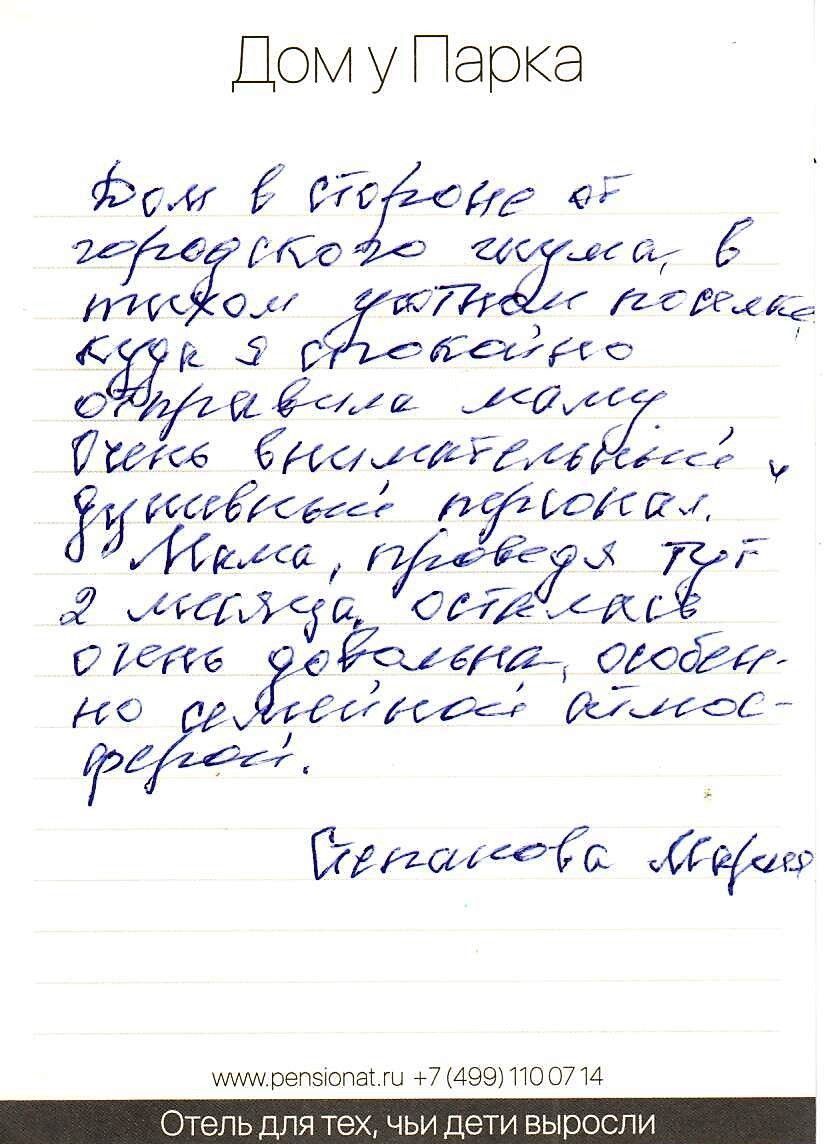 Дом у Парка
Дом в стороне от
городского шума, в
тихом уютном поселке,
куда я спокойно
отправила маму
Очень внимательный и
душевный персонал.
Мама, проведя тут
2 месяца, осталась
очень довольна, особен-
но семейной атмос-
ферой.
Степанова Мария
www.pensionat.ru +7 (499) 110 07 14
Отель для тех, чьи дети выросли